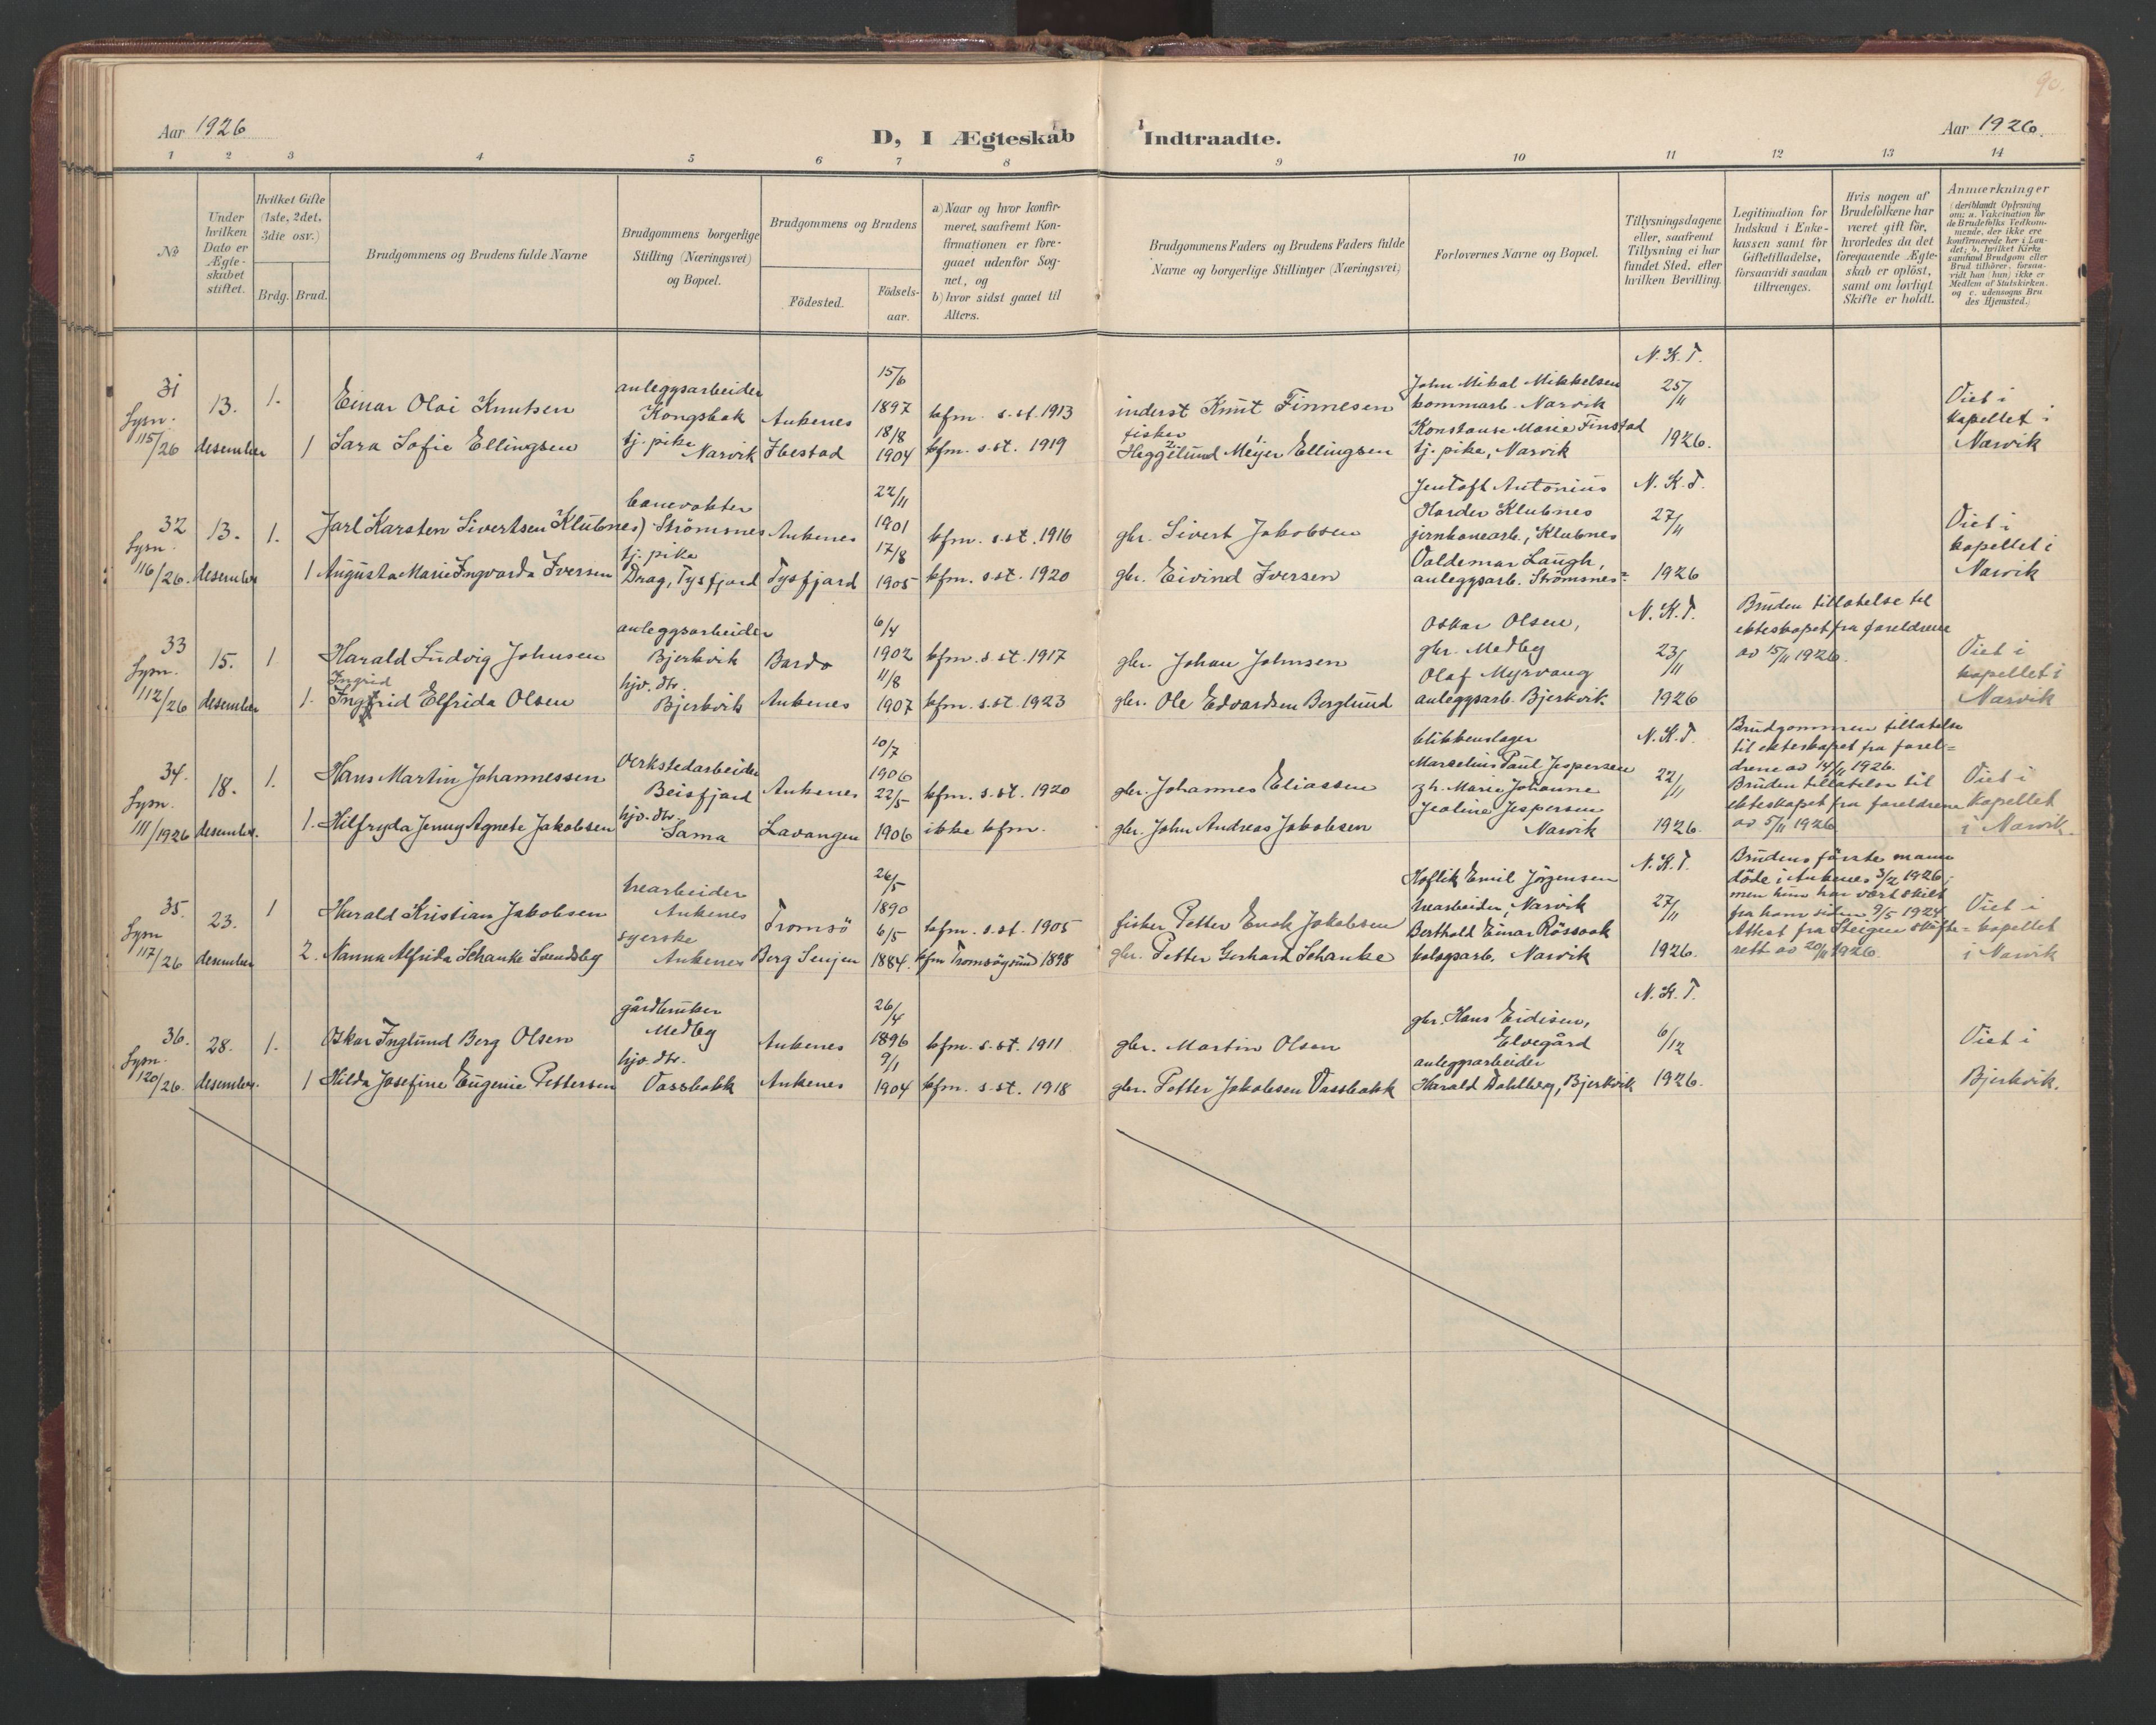 90.
Aar 1926
D, I Ægteskab Indtraadte.
Aar 1926.
1 2 3 4 5 6 7 8 9 10 11 12 13 14
No
Under hvilken Dato er Ægte-skabet stiftet.
Hvilket Gifte (1ste, 2det, 3die osv.)
Brdg. Brud.
Brudgommens og Brudens fulde Navne
Brudgommens borgerlige Stilling (Næringsvei) og Bopæl.
Brudgommens og Brudens
Födested.
Födsels-aar.
a) Naar og hvor konfir-meret, saafremt Kon-firmationen er fore-gaaet udenfor Sog-net, og
b) hvor sidst gaaet til Alters.
Brudgommens Faders og Brudens Faders fulde Navne og borgerlige Stillinger (Næringsvei)
Forlovernes Navne og Bopæl.
Tillysningsdagene eller, saafremt Tillysning ei har fundet Sted, efter hvilken Bevilling.
Legitimation for Indskud i Enke-kassen samt for Giftetilladelse, forsaavidt saadan tiltrænges.
Hvis nogen af Brudefolkene har været gift för, hvorledes da det foregaaende Ægte-skab er oplöst, samt om lovligt Skifte er holdt.
Anmærkninger (deriblandt Oplysning om: a. Vakcination for de Brudefolks Vedkom-mende, der ikke ere konfirmerede her i Lan-det; b. hvilket Kirke-samfund Brudgom eller Brud tilhörer, forsaa-vidt han (hun) ikke er Medlem af Statskirken. og c. udensogns Bru-des Hjemsted.)
31
Lysn. 115/26
13. desember
1.
Einar Olai Knutsen
anleggsarbeider
Kongsbak
Ankenes
15/6 1897
kfm. s. st. 1913
inderst Knut Finnesen
John Mikal Mikkelsen
kommarb. Narvik
N. K. T.
25/11
1926.
Viet i
kapellet i
Narvik
1
Sara Sofie Ellingsen
tj. pike
Narvik
Ibestad
18/8 1904
kfm. s. st. 1919
fisker
Heggelund Meijer Ellingsen
Konstanse Marie Finstad
tj. pike, Narvik
32
Lysn. 116/26.
13. desember
1.
Jarl Karsten Sivertsen Klubnes)
banevokter
Strömsnes
Ankenes
22/11 1901
kfm. s. st. 1916
gbr. Sivert Jakobsen
Jentoft Antonius
Harder Klubnes
jernbanearb., Klubnes
N. K. T.
27/11
1926
Viet i
kapellet i
Narvik
1
Augusta Marie Ingvarda Iversen
tj. pike
Drag, Tysfjord
Tysfjord
17/8 1905
kfm. s. st. 1920
gbr. Eivind Iversen
Valdemar Laugh,
anleggsarb. Strömsnes
33
Lysn. 112/26
15. desember
1
Harald Ludvig Johnsen
anleggsarbeider
Bjerkvik
Bardo
6/4 1902
kfm. s. st. 1917
gbr. Johan Johnsen
Oskar Olsen,
gbr. Medby
N. K. T.
23/11
1926
Bruden tillatelse til
ekteskapet fra foreldrene
av 15/11 1926.
Viet i
kapellet i
Narvik
1.
Ingrid
Ingfrid Elfrida Olsen
hjv. dtr.
Bjerkvik
Ankenes
11/8 1907
kfm. s. st. 1923
gbr. Ole Edvardsen Berglund
Olaf Myrvang
anleggsarb. Bjerkvik.
34.
Lysn. 111/1926
18. desember.
1.
Hans Martin Johannessen
verkstedarbeider
Beisfjord
Ankenes
10/7 1906
kfm. s. st. 1920
gbr. Johannes Eliassen
blikkenslager
Marselius Paul Jespersen
N. K. T.
22/11
1926.
Brudgommen tillatelse
til ekteskapet fra forel=
drene av 14/11 1926.
Bruden tillatelse til
ekteskapet fra foreldrene
av 5/11 1926
Viet i
kapellet
i Narvik.
1.
Hilfryda Jenny Agnete Jakobsen
hjv. dtr.
Sama
Lavangen
22/5 1906
ikke kfm.
gbr. John Andreas Jakobsen
Marie Johanne
Jeoline Jespersen
Narvik
35.
Lysn 117/26
23. desember
1
Harald Kristian Jakobsen
trearbeider
Ankenes
Tromsö
26/5 1890
kfm. s. st. 1905
fisker Petter Enok Jakobsen
Hoflik Emil Jörgensen
trearbeider, Narvik
N. K. T.
27/11
1926.
Brudens förste mann
döde i Ankenes 3/2 1926,
men hun har vært skilt
fra ham siden 9/5 1924.
Attest fra Steigen skifte=
rett av 20/11 1926.
Viet i
kapellet
i Narvik
2.
Nanna Alfrida Schanke Svendsby
syerske
Ankenes
Berg Senjen
6/5 1884.
kfm Tromsöysund 1898
gbr. Petter Gerhard Schanke
Berthold Einar Rössaak
bolagsarb. Narvik
36.
Lysn. 120/26.
28. desember.
1.
Oskar Inglund Berg Olsen
gårdbruker
Medby
Ankenes
26/4 1896
kfm. s. st. 1911
gbr. Martin Olsen
gbr. Hans Eidisen,
Elvegård
N. K. T.
6/12
1926.
Viet i
Bjerkvik.
1
Hilda Josefine Eugenie Pettersen
hjv. dtr.
Vassbakk
Ankenes
9/1 1904
kfm. s. st. 1918
gbr. Petter Jakobsen Vassbakk
anleggsarbeider
Harald Dahlberg, Bjerkvik